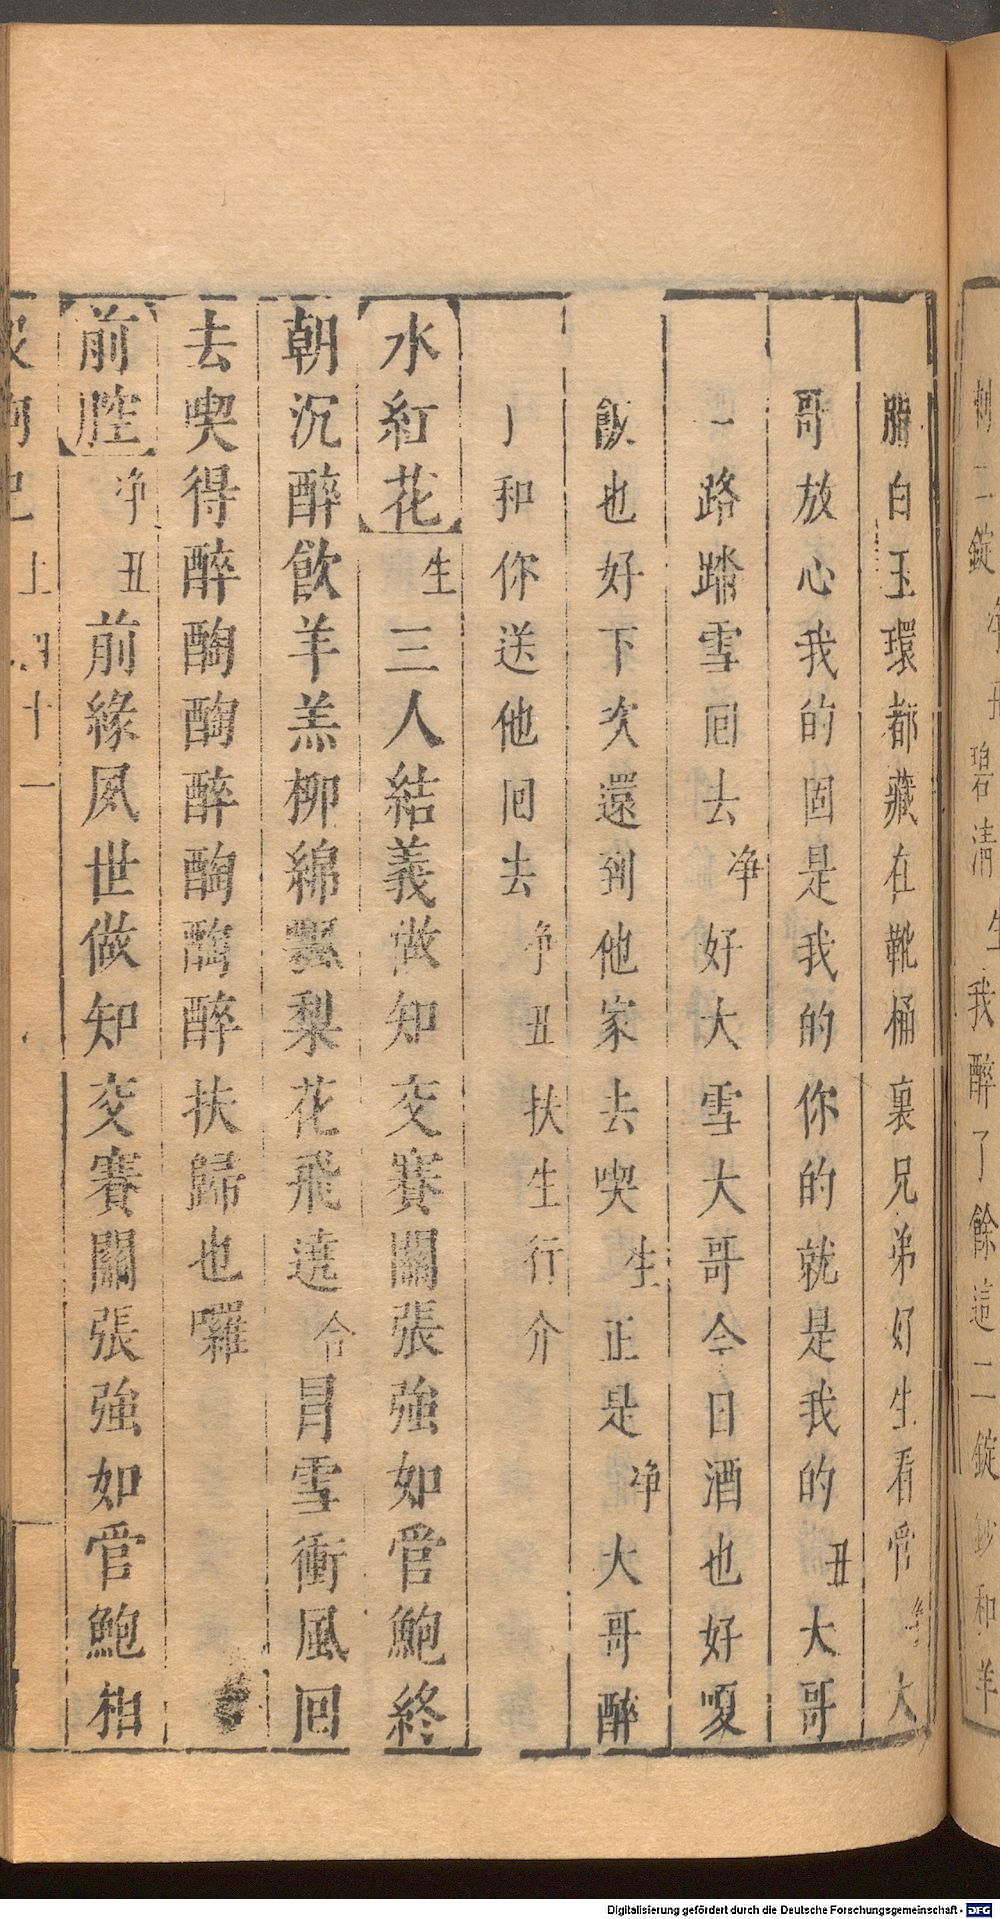 二錠
碧清生我醉了餘這二錠鈔和羊
脂白玉環都藏在靴桶裏兄弟好生看管淨大
哥放心我的固是我的你的就是我的丑大哥
一路踏雪回去淨好大雪大哥今日酒也好嗄
飯也好下次還到他家去喫生正是淨大哥醉
了和你送他回去淨丑扶生行介
水紅花生三人結義做知交賽關張強如管鮑終
朝沉醉飲羊羔柳綿飄梨花飛遶令冒雪衝風回
去喫得醉酶酶醉酶酶醉扶歸也囉
前腔淨丑前緣夙世做知交賽關張強如管鮑相
殺狗記 上 四十一
Digitalisierung gefördert durch die Deutsche Forschungsgemeinschaft - DFG